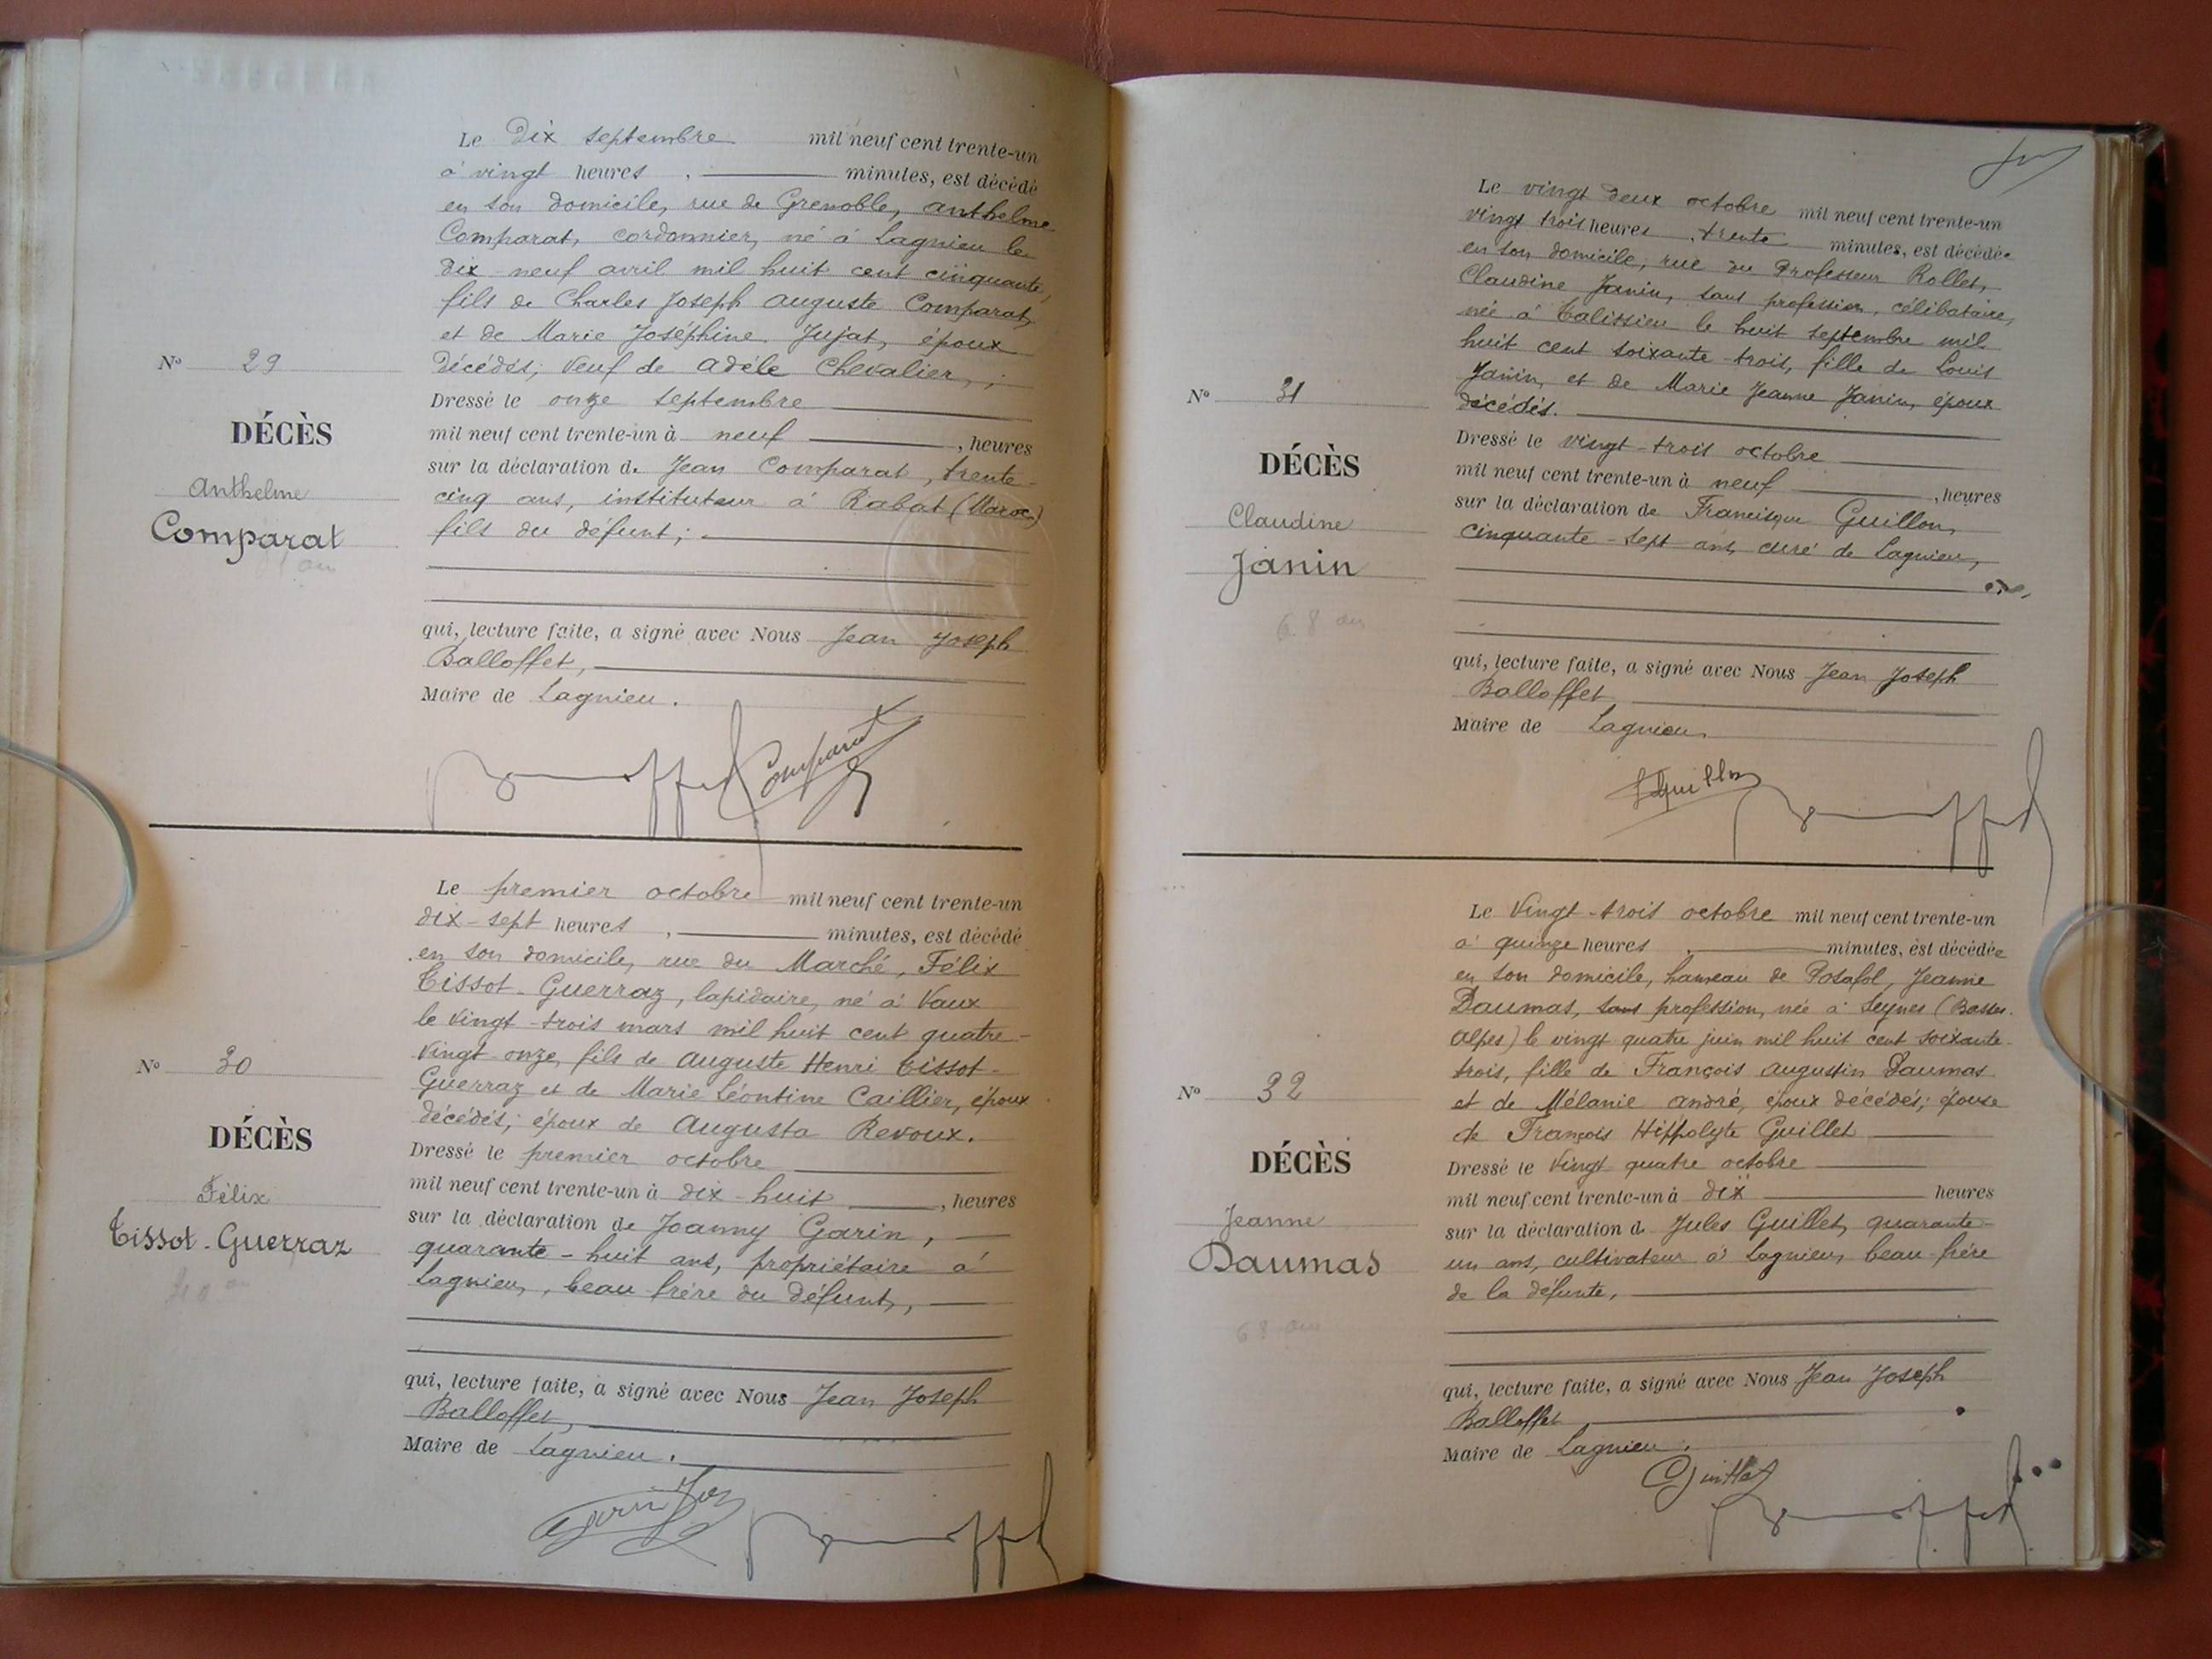 Le Dix septembre mil neuf cent trente-un
à vingt heures , minutes, est décédé
en son domicile, rue de Grenoble, Anthelme
Comparat, cordonnier, né à Lagnieu le
dix-neuf avril mil huit cent cinquante,
fils de Charles Joseph Auguste Comparat,
et de Marie Joséphine Jujat, époux
décédés; veuf de Adèle Chevalier, ;
N° 29
DÉCÈS
Anthelme
Comparat
81 ans
Dressé le onze septembre
mil neuf cent trente-un à neuf , heures
sur la déclaration de Jean Comparat, trente-
cinq ans, instituteur à Rabat (Maroc)
fils du défunt;
qui, lecture faite, a signé avec Nous Jean Joseph
Balloffet,
Maire de Lagnieu.
Comparat
Le premier octobre mil neuf cent trente-un
dix-sept heures , minutes, est décédé
en son domicile, rue du Marché, Félix
Tissot-Guerraz, lapidaire, né à Vaux
le vingt-trois mars mil huit cent quatre-
vingt-onze, fils de Auguste Henri Tissot-
Guerraz et de Marie Léontine Caillier, époux
décédés; époux de Augusta Revoux.
N° 30
DÉCÈS
Félix
Tissot-Guerraz
40 ans
Dressé le premier octobre
mil neuf cent trente-un à dix-huit , heures
sur la déclaration de Joanny Garin,
quarante-huit ans, propriétaire à
Lagnieu, beau-frère du défunt,
qui, lecture faite, a signé avec Nous Jean Joseph
Balloffet,
Maire de Lagnieu.
Le vingt deux octobre mil neuf cent trente-un
vingt trois heures , trente minutes, est décédée
en son domicile, rue du Professeur Rollet,
Claudine Janin, sans profession, célibataire,
née à Talissieu le huit septembre mil
huit cent soixante-trois, fille de Louis
Janin, et de Marie Jeanne Janin, époux
décédés.
N° 31
DÉCÈS
Claudine
Janin
68 ans
Dressé le vingt-trois octobre
mil neuf cent trente-un à neuf , heures
sur la déclaration de Francisque Guillon,
cinquante-sept ans, curé de Lagnieu,
qui, lecture faite, a signé avec Nous Jean Joseph
Balloffet
Maire de Lagnieu
Guillon
Le Vingt-trois octobre mil neuf cent trente-un
à quinze heures , minutes, est décédée
en son domicile, hameau de Posafol, Jeanne
Daumas, sans profession, née à Seynes (Basses-
Alpes) le vingt quatre juin mil huit cent soixante-
trois, fille de François Augustin Daumas
et de Mélanie André, époux décédés; épouse
de François Hippolyte Guillet
N° 32
DÉCÈS
Jeanne
Daumas
68 ans
Dressé le Vingt quatre octobre
mil neuf cent trente-un à dix heures
sur la déclaration de Jules Guillet, quarante-
un ans, cultivateur à Lagnieu, beau-frère
de la défunte,
qui, lecture faite, a signé avec Nous Jean Joseph
Balloffet
Maire de Lagnieu.
Guillet